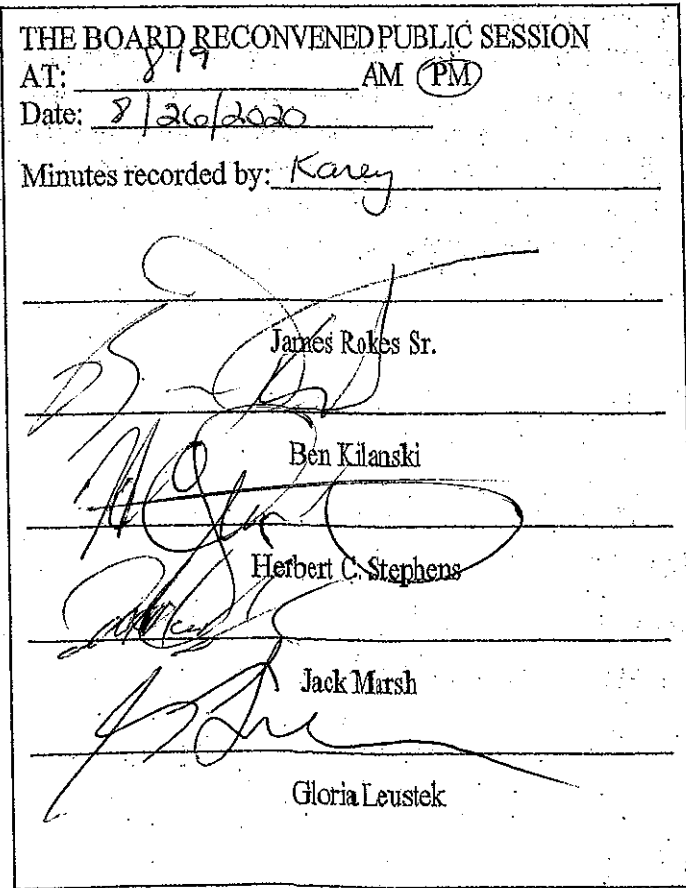 THE BOARD RECONVENED PUBLIC SESSION
AT: 819 AM PM
Date: 8/26/2020
Minutes recorded by: Karey
James Rokes Sr.
Ben Kilanski
Herbert C. Stephens
Jack Marsh
Gloria Leustek